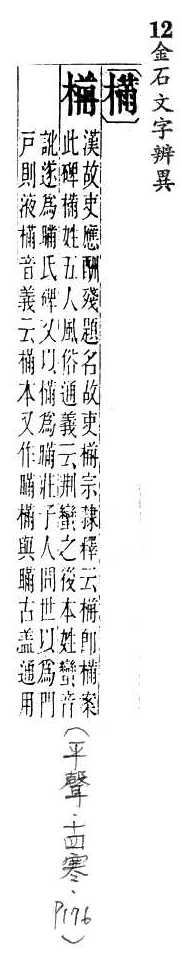 12金石文字辨異
〔樠〕
漢故吏應酬殘題名故吏樠宗隸釋云樠即樠案
此碑樠姓五人風俗通義云荆蠻之後本姓蠻音
訛遂為瞞氏碑又以樠為瞞莊子人間世以為門
戶則液樠音義云樠本又作瞞樠與瞞古盖通用
(平聲．十四寒．P176)